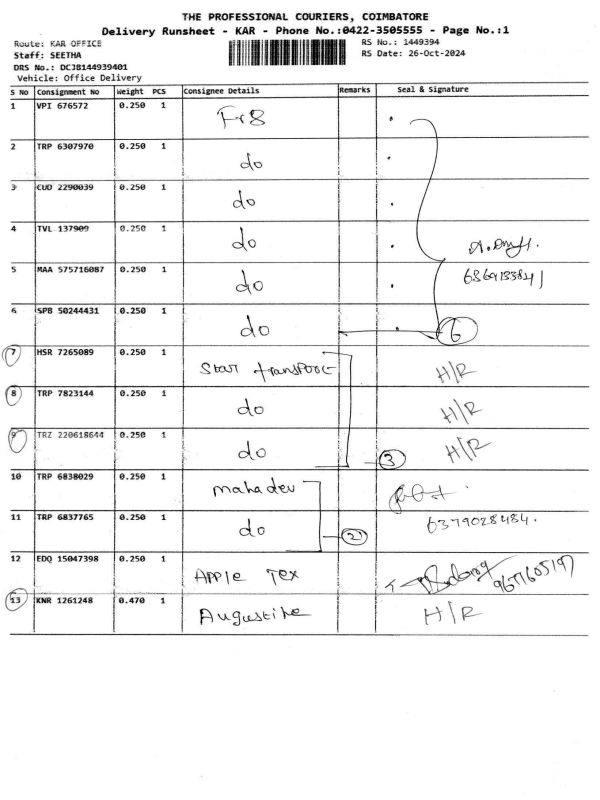 THE PROFESSIONAL COURIERS, COIMBATORE
Delivery Runsheet - KAR - Phone No.:0422-3505555 - Page No.:1
Route: KAR OFFICE RS No.: 1449394
Staff: SEETHA RS Date: 26-Oct-2024
DRS No.: DCJB144939401
Vehicle: Office Delivery
S No Consignment No Weight PCS Consignee Details Remarks Seal & Signature
1 VPI 676572 0.250 1
2 TRP 6307970 0.250 1 do
3 CUD 2290039 0.250 1 do
4 TVL 137909 0.250 1 do
5 MAA 575716087 0.250 1 do
6 SPB 50244431 0.250 1 do 6
7 HSR 7265089 0.250 1 Star transport H/R
8 TRP 7823144 0.250 1 do H/R
9 TRZ 220618644 0.250 1 do H/R
3
10 TRP 6838029 0.250 1 mahadev
11 TRP 6837765 0.250 1 do 2 6379028484.
12 EDQ 15047398 0.250 1 APPLE TEX
13 KNR 1261248 0.470 1 Augustine H/R